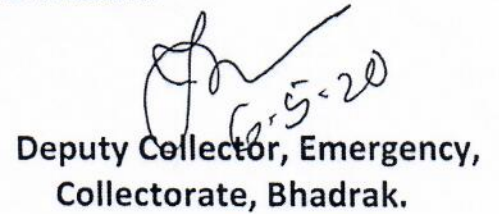 6-5-20
Deputy Collector, Emergency,
Collectorate, Bhadrak.